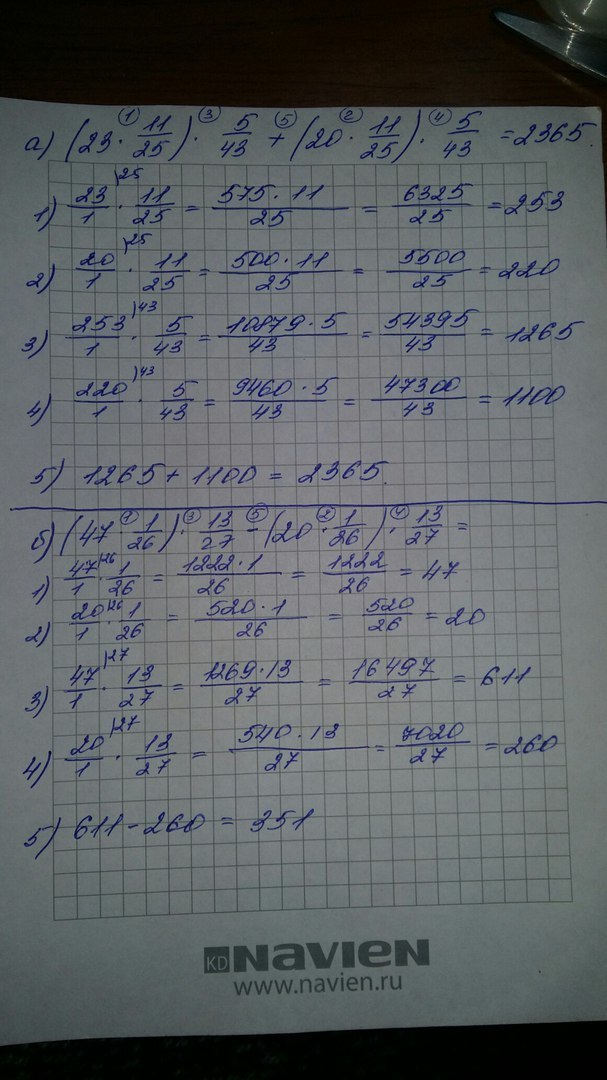 а) (23 · 11/25) · 5/43 + (20 · 11/25) · 5/43 = 2365.
① ③ ⑤ ② ④
1) 23/1 ⁾²⁵ · 11/25 = 575 · 11/25 = 6325/25 = 253
2) 20/1 ⁾²⁵ · 11/25 = 500 · 11/25 = 5500/25 = 220
3) 253/1 ⁾⁴³ · 5/43 = 10879 · 5/43 = 54395/43 = 1265
4) 220/1 ⁾⁴³ · 5/43 = 9460 · 5/43 = 47300/43 = 1100
5) 1265 + 1100 = 2365.
б) (47 · 1/26) · 13/27 - (20 · 1/26) · 13/27 =
① ③ ⑤ ② ④
1) 47/1 ⁾²⁶ · 1/26 = 1222 · 1/26 = 1222/26 = 47
2) 20/1 ⁾²⁶ · 1/26 = 520 · 1/26 = 520/26 = 20
3) 47/1 ⁾²⁷ · 13/27 = 1269 · 13/27 = 16497/27 = 611
4) 20/1 ⁾²⁷ · 13/27 = 540 · 13/27 = 7020/27 = 260
5) 611 - 260 = 351
KD NAVIEN
www.navien.ru